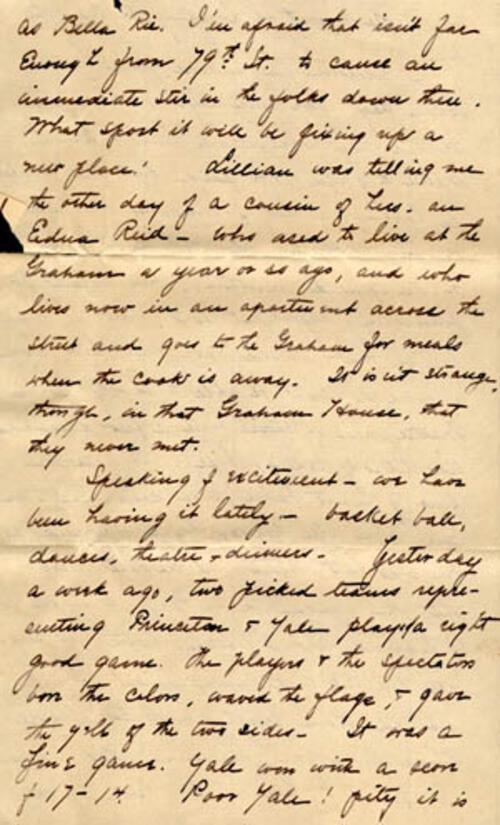 As Bella Rie. I'm afraid that isn't far
Enough from 79th St. to cause an
immediate stir in the folks down there.
What sport it will be fixing up a
new place! Lillian was telling me
the other day of a cousin of hers - an
Edna Reid - who used to live at the
Graham a year or so ago, and who
lives now in an apartment across the
street and goes to the Graham for meals
when the cook is away. It isn't strange,
though, in that Graham House, that
they never met.
Speaking of excitement - we have
been having it lately - basket ball,
dances, theatre + dinners - Yesterday
a week ago, two picked teams repre-
senting Princeton & Yale played a right
good game. The players & the spectators
bore the colors, waved the flags, & gave
the yell of the two sides - It was a
fine game. Yale won with a score
of 17-14. Poor Yale! pity it is